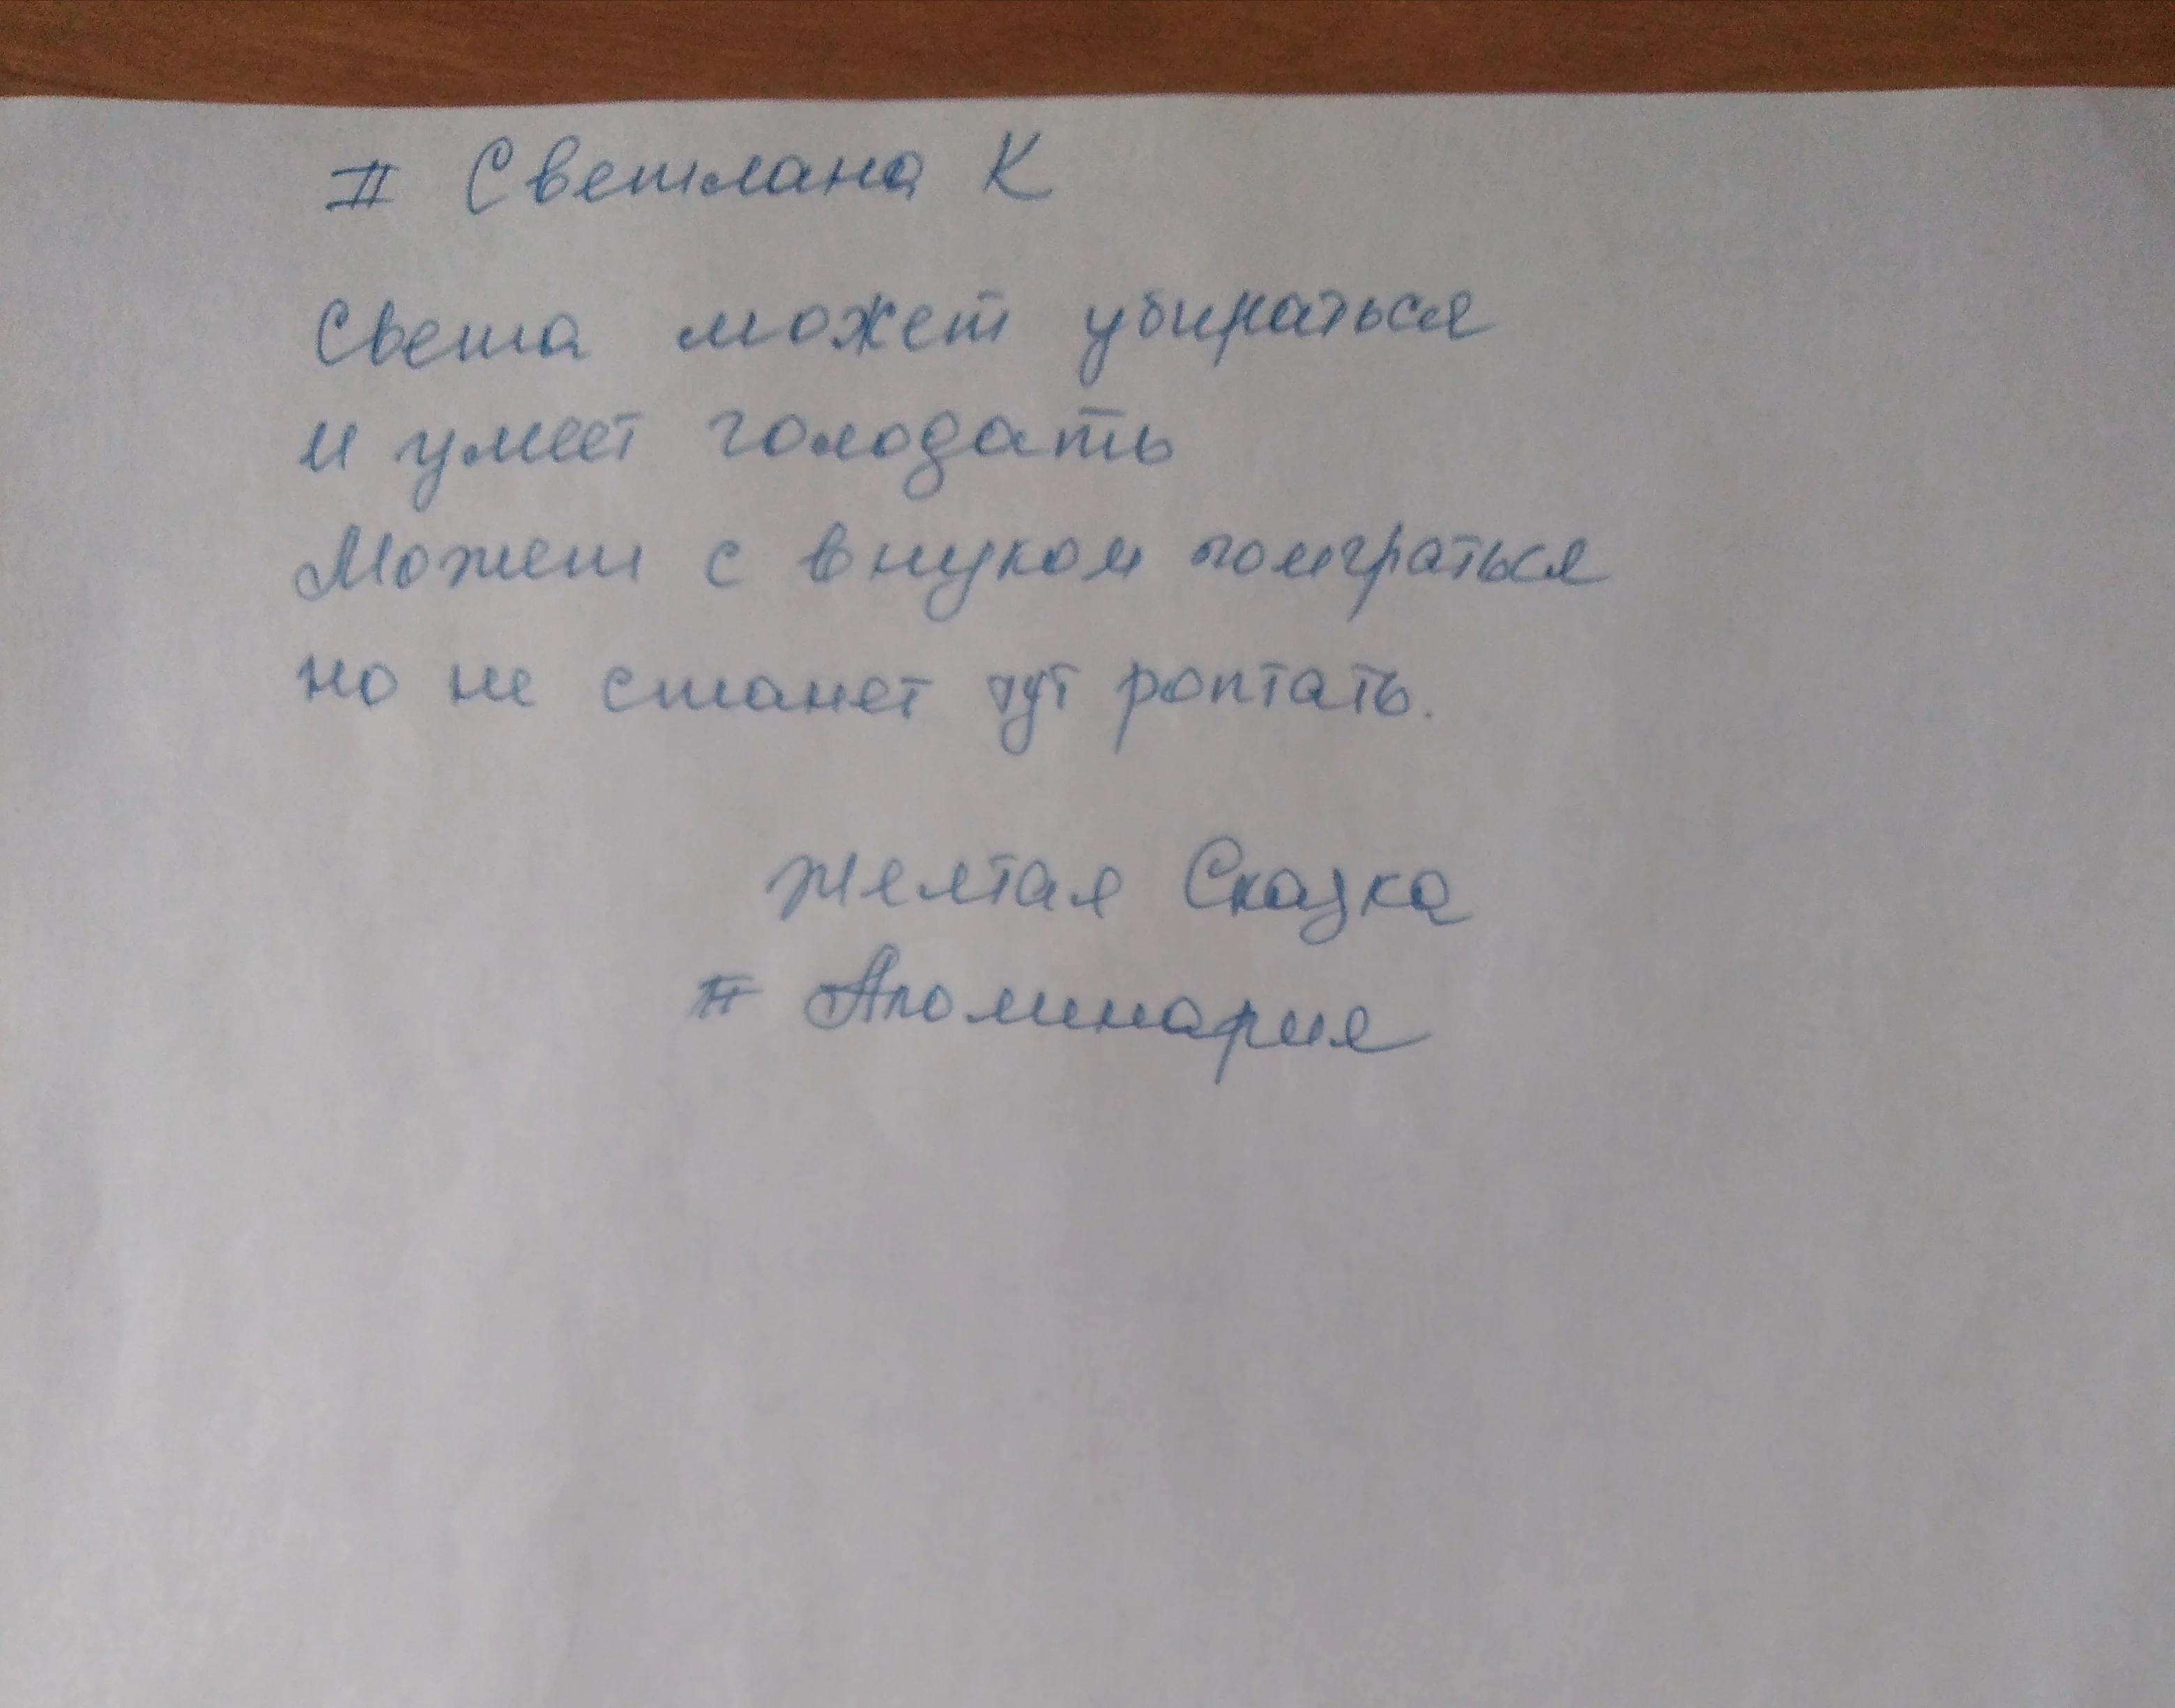 # Светлана К
Света может убираться
и умеет голодать
Может с внуком поиграться
но не станет тут роптать.
Желтая Сказка
# Аполинария